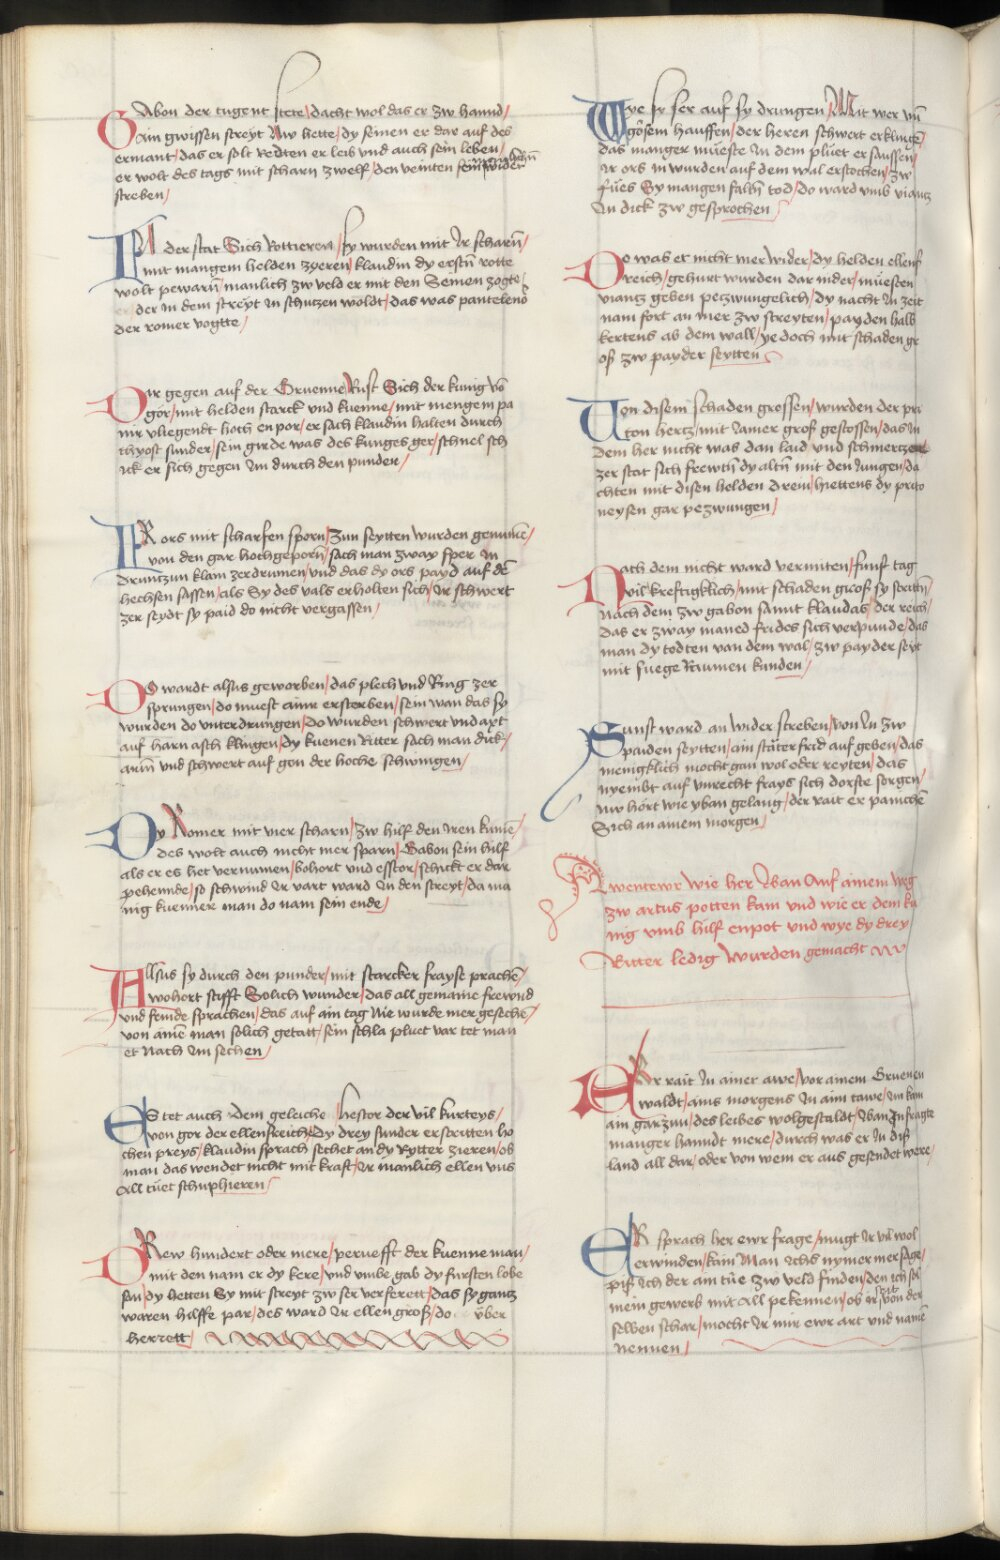 GAbon der tugent stete / dacht wol das er zw hannd /
Ain gwissen streyt Nw hette / dy seinen er dar auf des
ermant / das er solt Redten er leib vnd auch sein leben /
er wolt des tags mit scharn zwelf / den veinten wider
streben /
IN der stat Sich Rottieren / sy wurden mit Ir scharn̄ /
mit mangem helden zyeren / klaudin dy erstn̄ rotte
wolt pewarn̄ / manlich zw veld er mit den Seinen zogte /
der in dem streyt In schutzen woldt / das was pantelenō
der romer vogtte /
Dir gegen auf der Gruenne / Rust Sich der kunig vō
gor / mit helden starck vnd kuenne / mit mengem pa
nir vliegendt hoch enpor / er sach klaudin halten durch
thyost sunder / sein girde was des kunges ger / schnel sch
ick er sich gegen Im durch den punder /
IR ors mit scharfen sporn / Zun seytten wurden genumē /
von den gar hochgeporn̄ / sach man zway sper In
Drunzun klain zerdrumen / vnd das dy ors payd auf dē
hechsen sassen / als Sy des vals erholten sich / Ir schwert
zer seydt sy paid do nicht vergassen /
DO wardt alsus geworben / das plech vnd Ring zer
sprungen / do muest ainr ersterben / sein wan das sy
wurden do vnterdrungen / do wurden schwert vnd axt
auf harnasch klingen / dy kuenen Ritter sach man dick /
arm̄ vnd schwert auf gen der hoche schwingen /
DY Romer mit vier scharn / zw hilf den Iren kumē /
des wolt auch nicht mer sparn / Gabon sein hilf
als er es het vernumen / bohort vnd esstor / schickt er dar
peheinde / so schwind Ir vart ward In den streyt / da ma
nig kuenner man do nam sein ende /
Allsus sy durch den punder / mit starcker frayse prachē /
wohort stifft Solich wunder / das all gemaine frewnd
vnd feinde sprachen / das auf ain tag Nie wurde mer gesechē /
von ainē man solich getatt / sein schla pluet var tet man
et Nach Im sechen /
ES tet auch dem geleiche / hestor der vil kurteys /
von gor der ellensreiche / Dy drey sunder erstritten ho
chen preys / klaudin sprach sechet an dy Rytter zieren / ob
man das wendet nicht mit kraft / Ir manlich ellen vns
All tüet schuphieren /
DRew hundert oder mere / peruefft der kuenne man /
mit den nam er dy kere / vnd vmbe gab dy fursten lobe
san / dy hetten Sy mit streyt zw ser verserett / das sy gantz
waren hilffe par / des ward Ir ellen groß / do über
herrett /
Wye sy ser auf sy drungen / Mit wer vn̄
grosem hauffen / der heren schwert erklungē /
das manger müeste In dem plüet ersauffen /
Ir ors In wurden auf dem wal erstochen / zw
fües Sy mangen faltn̄ tod / do ward vmb viantz
In dick zw gesprochen /
Do was et nicht mer wider / dy helden ellens
reich / gehurt wurden dar nider / muesten
viantz geben pezwungelich / dy nacht In zeit
nam fort an mer zw streyten / payden halb
kertens ab dem wall / ye doch mit schaden gr
oß zw payder seytten
Von disem schaden grossen / wurden der pri
ton hertz / mit Jamer groß gestossen / das In
Dem her nicht was dan laid vnd schmertzen /
zer stat sich frewtn̄ dy altn̄ mit den Jungen / da
chten mit disen helden drein / hiettens dy prito
neysen gar pezwungen /
Nach dem nicht ward vermiten / funf tag
vil kreftigklich / mit schaden groß sy stritn̄ /
Nach dem zw gabon samt klaudas der reich /
das er zway maned frides sich verpunde / das
man dy todten van dem wal / zw payder seyt
mit fuege Raumen kunden /
Sunst ward an wider streben / von In zw
paiden seytten / ain stäter frid auf geben / das
menigklich mocht gan wol oder reyten / das
nyembt auf vnrecht frays sich dorste sorgen /
Nw hört wie yban gelang / der rait er panichē
Sich an ainem morgen /
Awentewr wie her Yban Auf ainem weg
zw artus potten kam vnd wie er dem ku
nig vmb hilf enpot vnd wye dy drey
Ritter ledig wurden gemacht
ER rait In ainer awe / vor ainem Gruenen
waldt / ains morgens In aim tawe / Im kam
ain garzun / des leibes wolgestaldt / Yban In fragte
manger hanndt mere / durch was er In diß
land all dar / oder von wem er aus gesendet were /
ER sprach her ewr frage / mugt Ir vil wol
erwinden / kain Man Ichs nymer mer sage /
piß Ich der ain tüe zw veld finden / den ich sol
mein gewerb mit All pekennen / ob Ir seit von der
selben schar / mocht Ir mir ewr art vnd namē
Nennen /